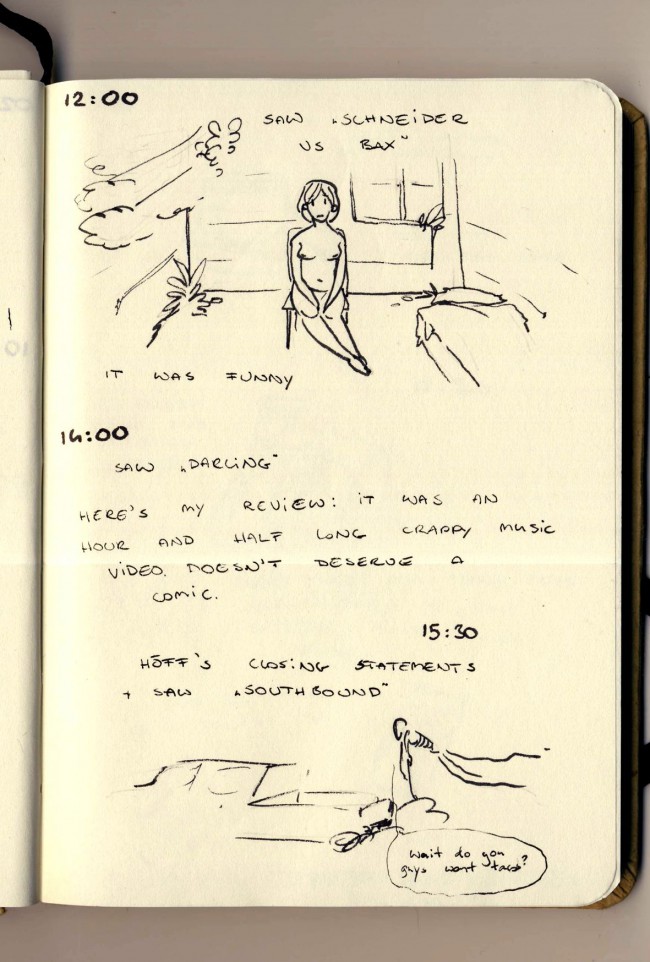 12:00
SAW „SCHNEIDER
VS BAX"
IT WAS FUNNY
14:00
SAW „DARLING"
HERE'S MY REVIEW: IT WAS AN
HOUR AND HALF LONG CRAPPY MUSIC
VIDEO. DOESN'T DESERVE A
COMIC.
15:30
HÕFF'S CLOSING STATEMENTS
+ SAW „SOUTHBOUND"
wait do you
guys want